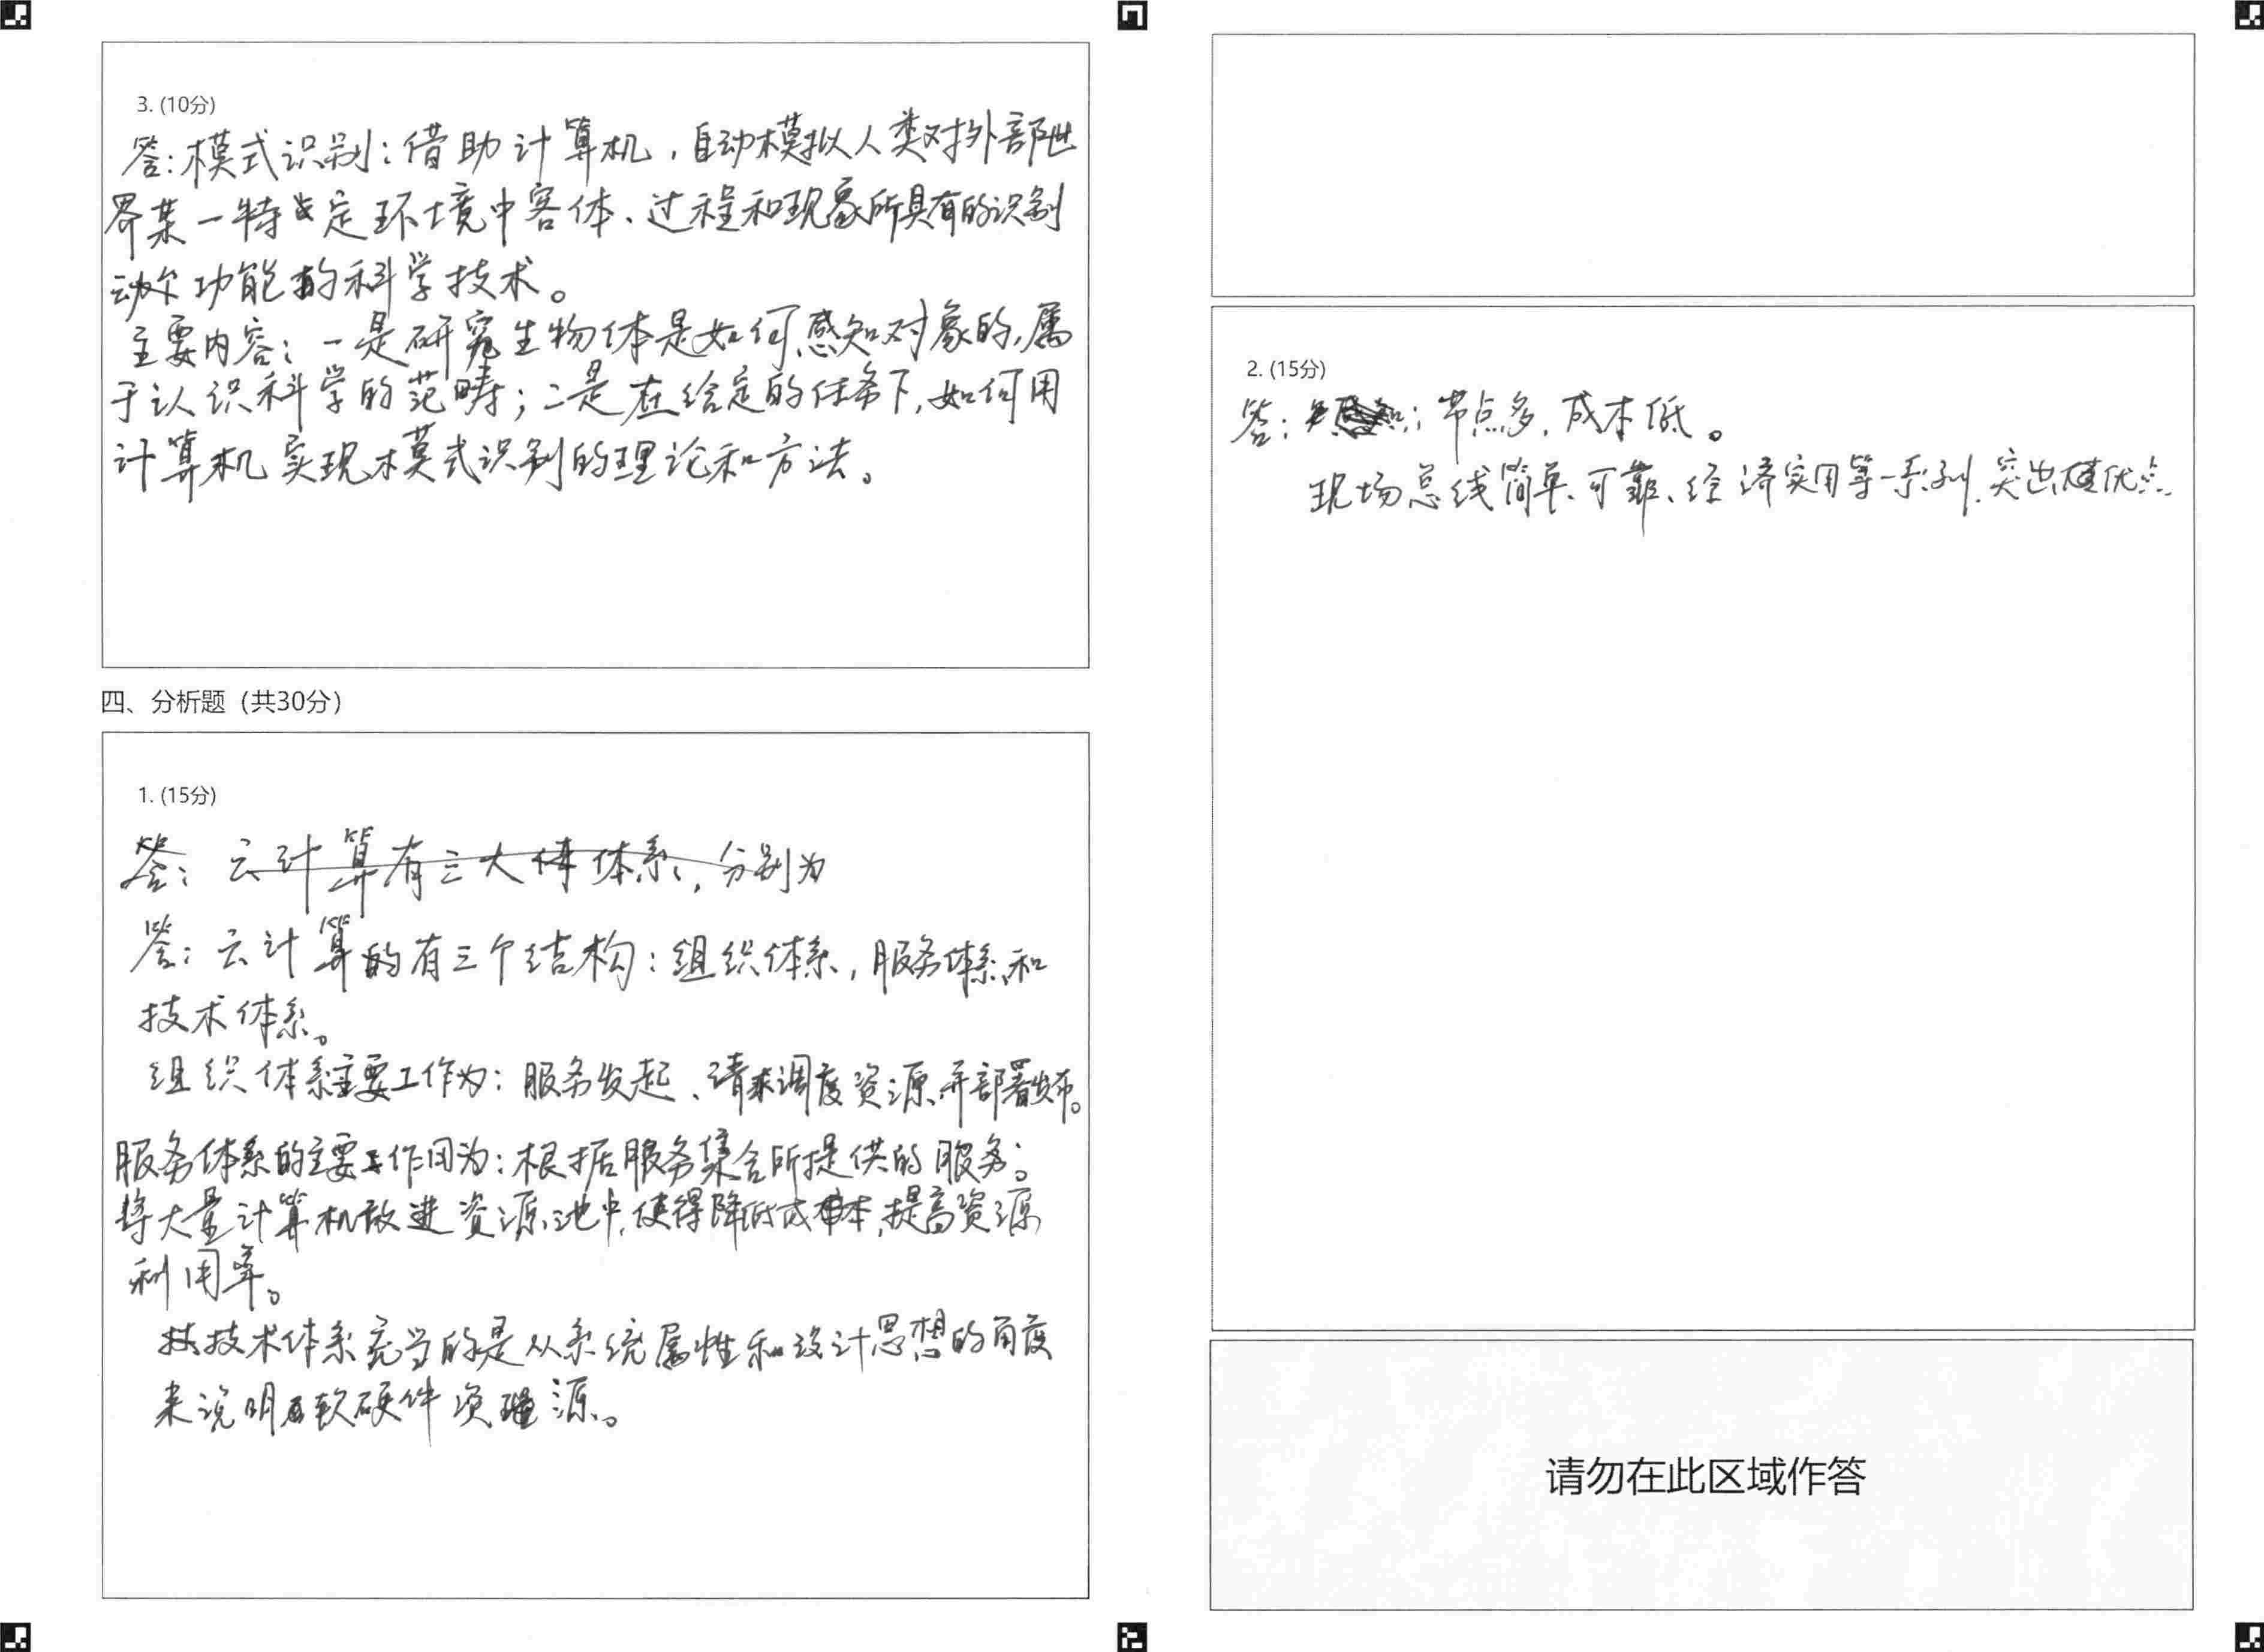 3. (10分)
答:模式识别:借助计算机,自动模拟人类对外部世
界某一特定环境中客体、过程和现象所具有的识别
功能的科学技术。
主要内容:一是研究生物体是如何感知对象的,属
于认识科学的范畴;二是在给定的任务下,如何用
计算机实现模式识别的理论和方法。
四、分析题(共30分)
1. (15分)
答:云计算有三大体系,分别为
答:云计算的有三个结构:组织体系,服务体系和
技术体系。
组织体系主要工作为:服务发起、请求调度资源、并部署发布。
服务体系的主要工作用为:根据服务集合所提供的服务。
将大量计算机放进资源池中,使得降低成本,提高资源
利用率。
技术体系充当的是从系统属性和设计思想的角度
来说明软硬件资源。
2. (15分)
答:节点多,成本低。
现场总线简单、可靠、经济实用等一系列突出优点
请勿在此区域作答